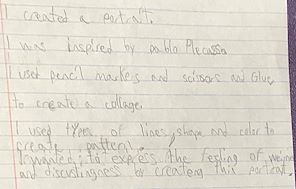 I created a portrait.
I was inspired by pablo Piecasso
I used pencil markes and scissors and Glue
to create a collage.
I used types of lines, shape, and color to
create pattern.
I wanted to express the feeling of
and discustingness by createing this portrait.